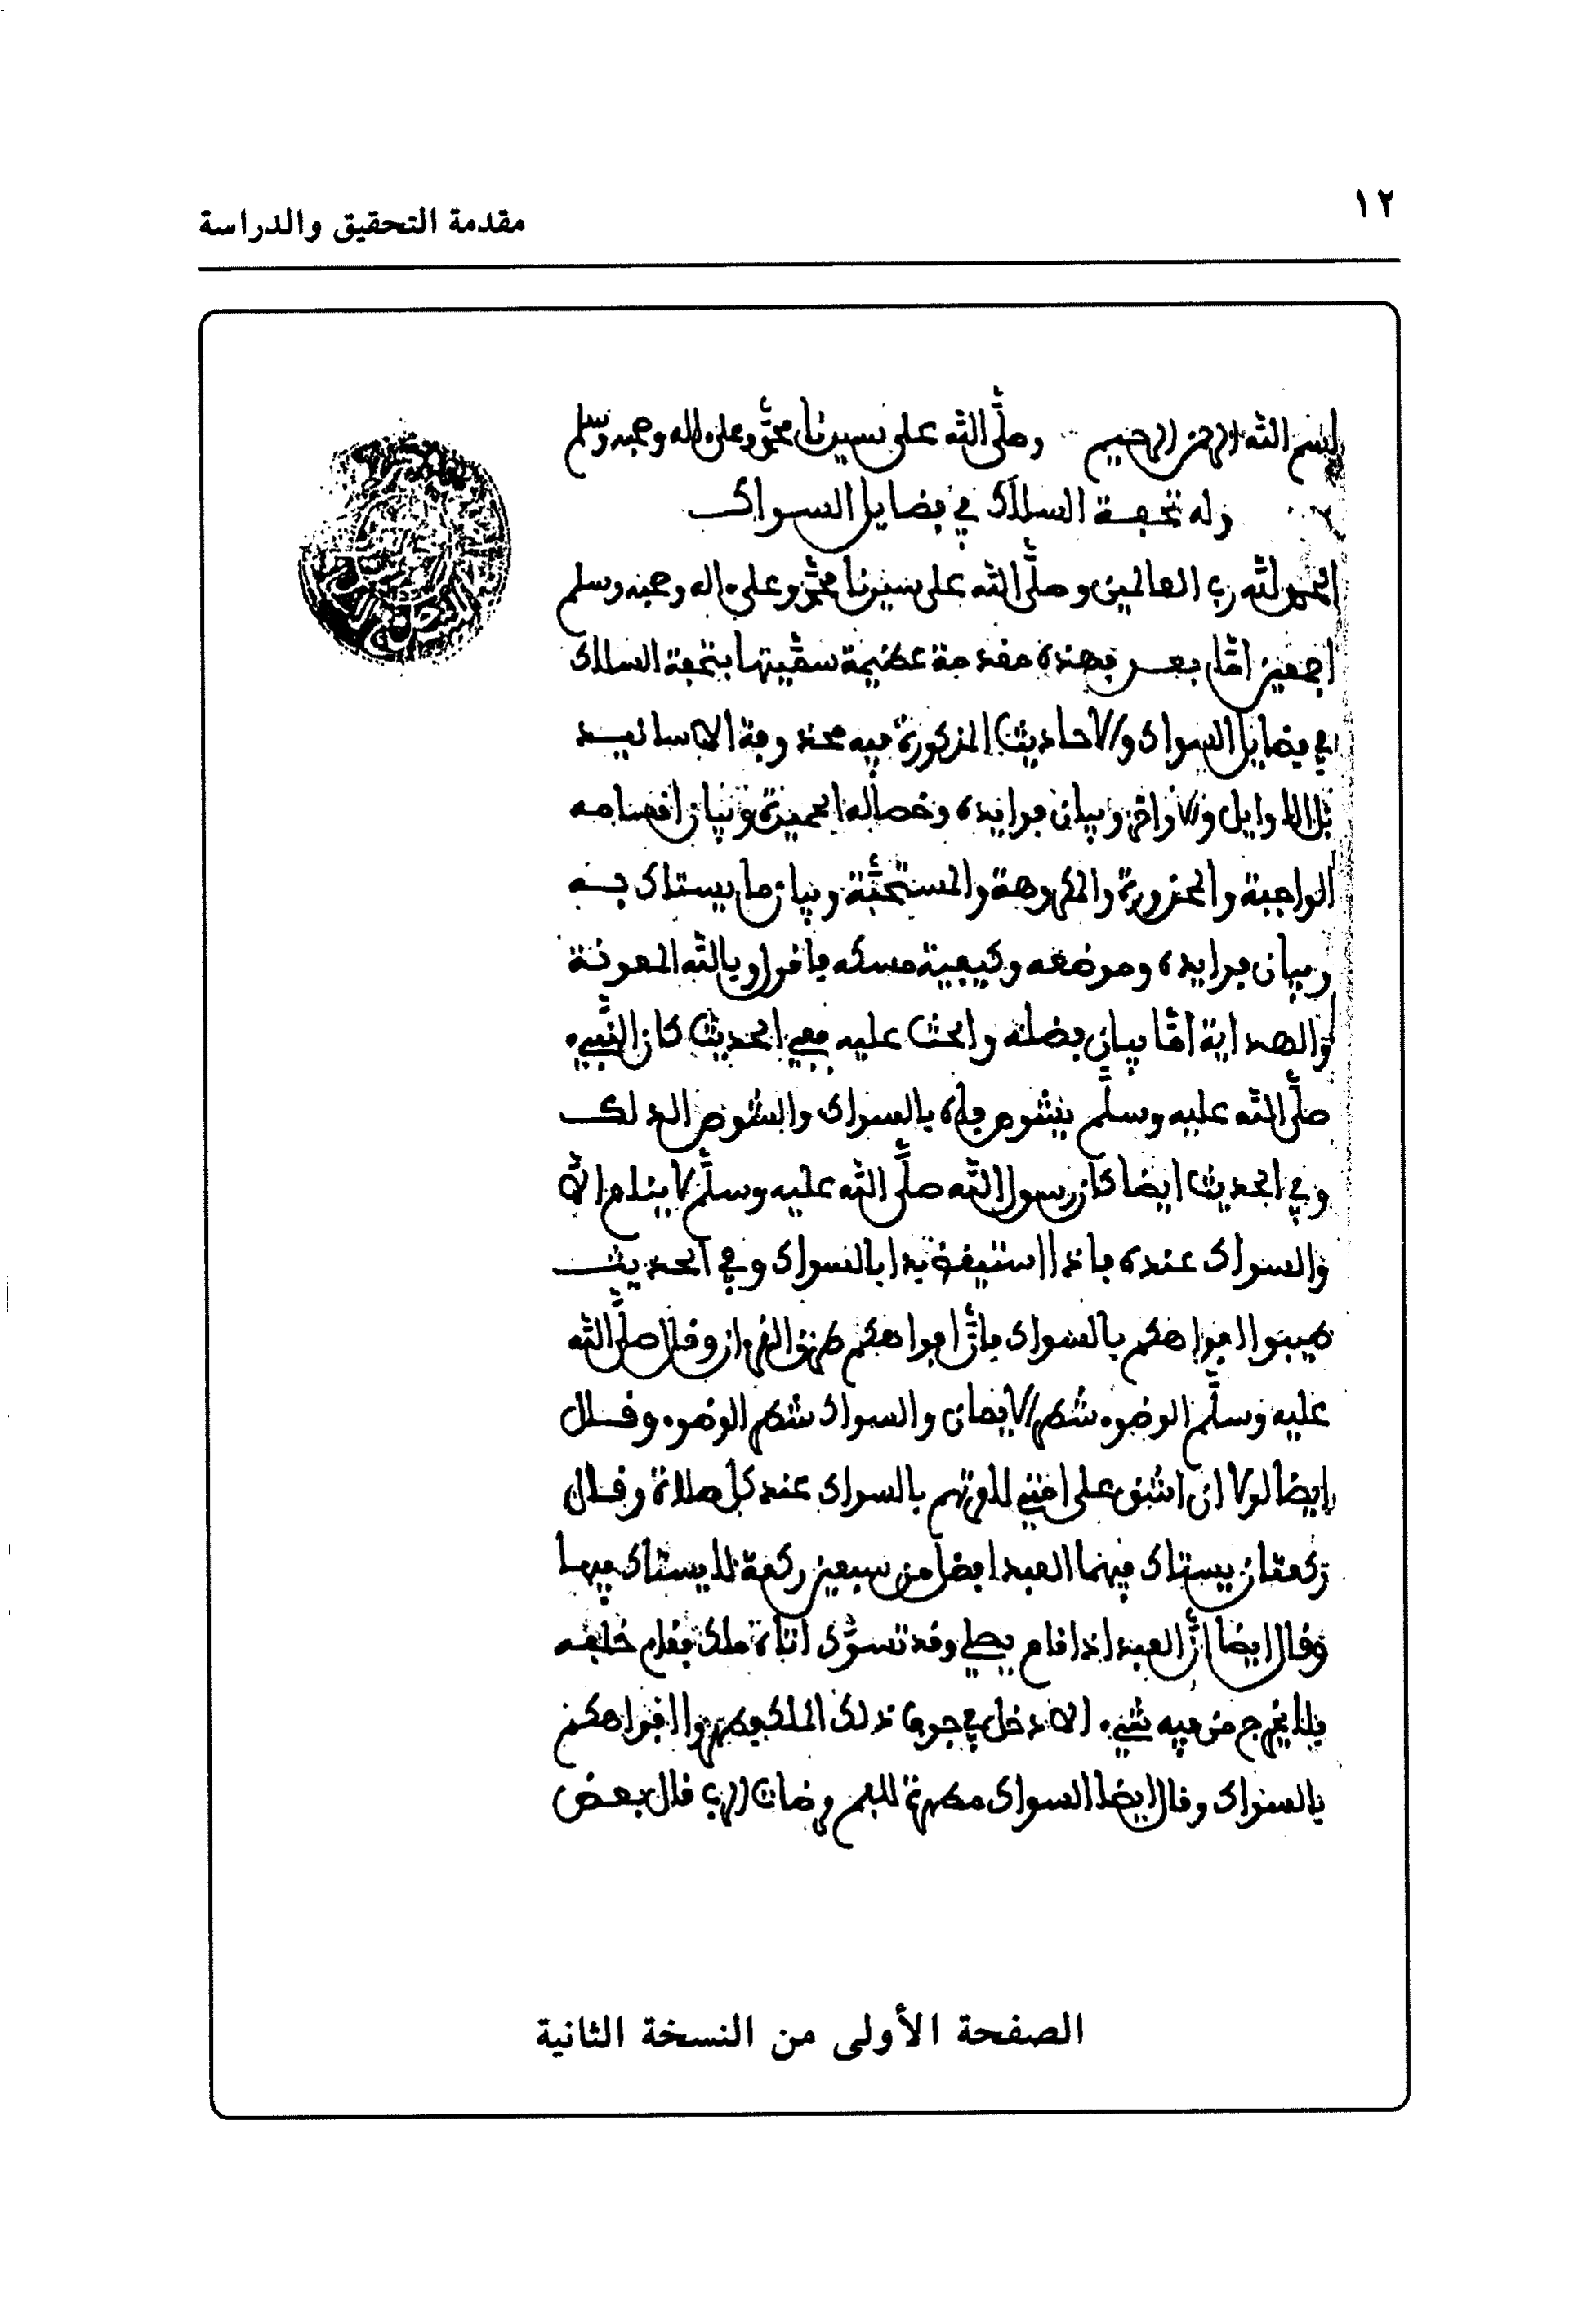 ١٢
مقدمة التحقيق والدراسة
بسم الله الرحمن الرحيم وصلى الله على سيدنا محمد وعلى ءاله وصحبه وسلم
وله تحفة السلاك في فضايل السواك
الحمد لله رب العالمين وصلى الله على سيدنا محمد وعلى ءاله وصحبه وسلم
اجمعين اما بعد فهذه مقدمة عظيمة سميتها بتحفة السلاك
في فضايل السواك والاحاديث المذكورة فيه محذوفة الاسانيد
الاوايل والاواخر وبيان فوايده وخصاله الحميدة وبيان اقسامه
الواجبة والمحذورة والمكروهة والمستحبة وبيان ما يستاك به
وبيان فوايده وموضعه وكيفية مسكه فاقول وبالله المعونة
والهداية اما بيان فضله والحث عليه ففي الحديث كان النبيء
صلى الله عليه وسلم يشوص فاه بالسواك والشوص الدلك
وفي الحديث ايضا كان رسول الله صلى الله عليه وسلم لا ينام الا
والسواك عنده فاذا استيقظ بدا بالسواك وفي الحديث
طيبوا افواهكم بالسواك فان افواهكم طرق القرءان وقال صلى الله
عليه وسلم الوضوء شطر الايمان والسواك شطر الوضوء وقال
ايضا لولا ان اشق على امتي لامرتهم بالسواك عند كل صلاة وقال
ركعتان يستاك فيهما العبد افضل من سبعين ركعة لا يستاك فيها
وقال ايضا ان العبد اذا قام يصلي وقد تسوك اتاه ملك فقام خلفه
فلا يخرج من فيه شيء الا دخل في جوف ذلك الملك فطهروا افواهكم
بالسواك وقال ايضا السواك مطهرة للفم مرضات الرب قال بعض
الصفحة الأولى من النسخة الثانية